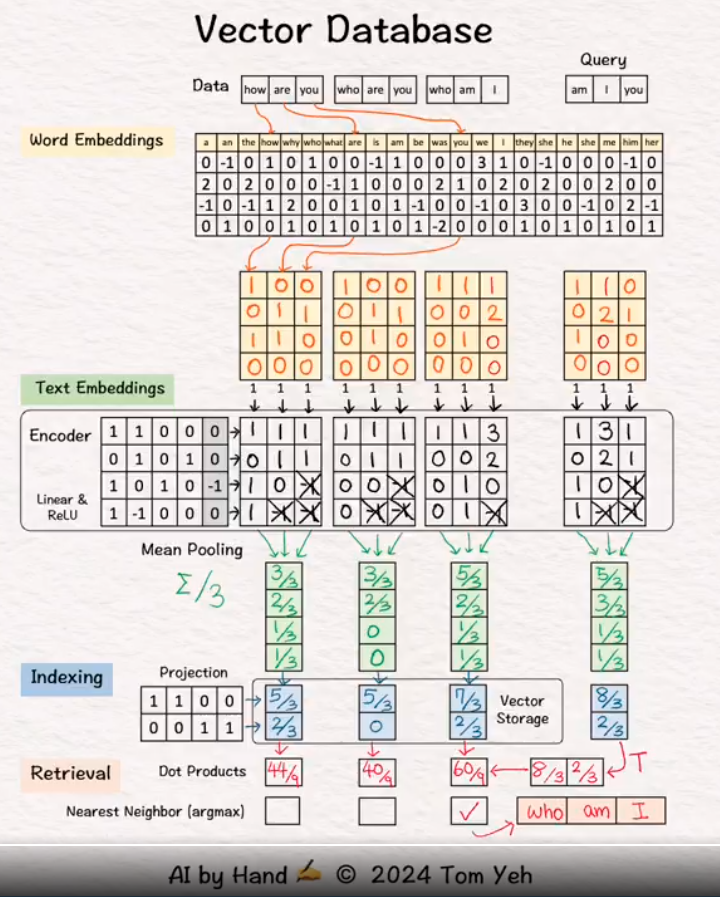 Vector Database
Query
Data how are you who are you who am I am I you
Word Embeddings
a an the how why who what are is am be was you we I they she he she me him her
0 -1 0 1 0 1 0 0 -1 1 0 0 0 3 1 0 -1 0 0 0 -1 0
2 0 2 0 0 0 -1 1 0 0 0 2 1 0 2 0 2 0 0 2 0 0
-1 0 -1 1 2 0 0 1 0 1 -1 0 0 -1 0 3 0 0 -1 0 2 -1
0 1 0 0 1 0 1 0 1 0 1 -2 0 0 0 1 0 1 0 1 0 1
1 0 0 1 0 0 1 1 1 1 1 0
0 1 1 0 1 1 0 0 2 0 2 1
1 1 0 0 1 0 0 1 0 1 0 0
0 0 0 0 0 0 0 0 0 0 0 0
Text Embeddings
1 1 1 1 1 1 1 1 1 1 1 1
Encoder 1 1 0 0 0 1 1 1 1 1 1 1 1 3 1 3 1
0 1 0 1 0 0 1 1 0 1 1 0 0 2 0 2 1
1 0 1 0 -1 1 0 0 0 0 1 0 1 0
Linear &
ReLU 1 -1 0 0 0 1 0 0 1 1
Mean Pooling
Σ/3
3/3 3/3 5/3 5/3
2/3 2/3 2/3 3/3
1/3 0 1/3 1/3
1/3 0 1/3 1/3
Indexing
Projection
1 1 0 0 5/3 5/3 7/3 Vector 8/3
0 0 1 1 2/3 0 2/3 Storage 2/3
T
Retrieval Dot Products 44/9 40/9 60/9 8/3 2/3
Nearest Neighbor (argmax) ✓ who am I
AI by Hand ✍ © 2024 Tom Yeh